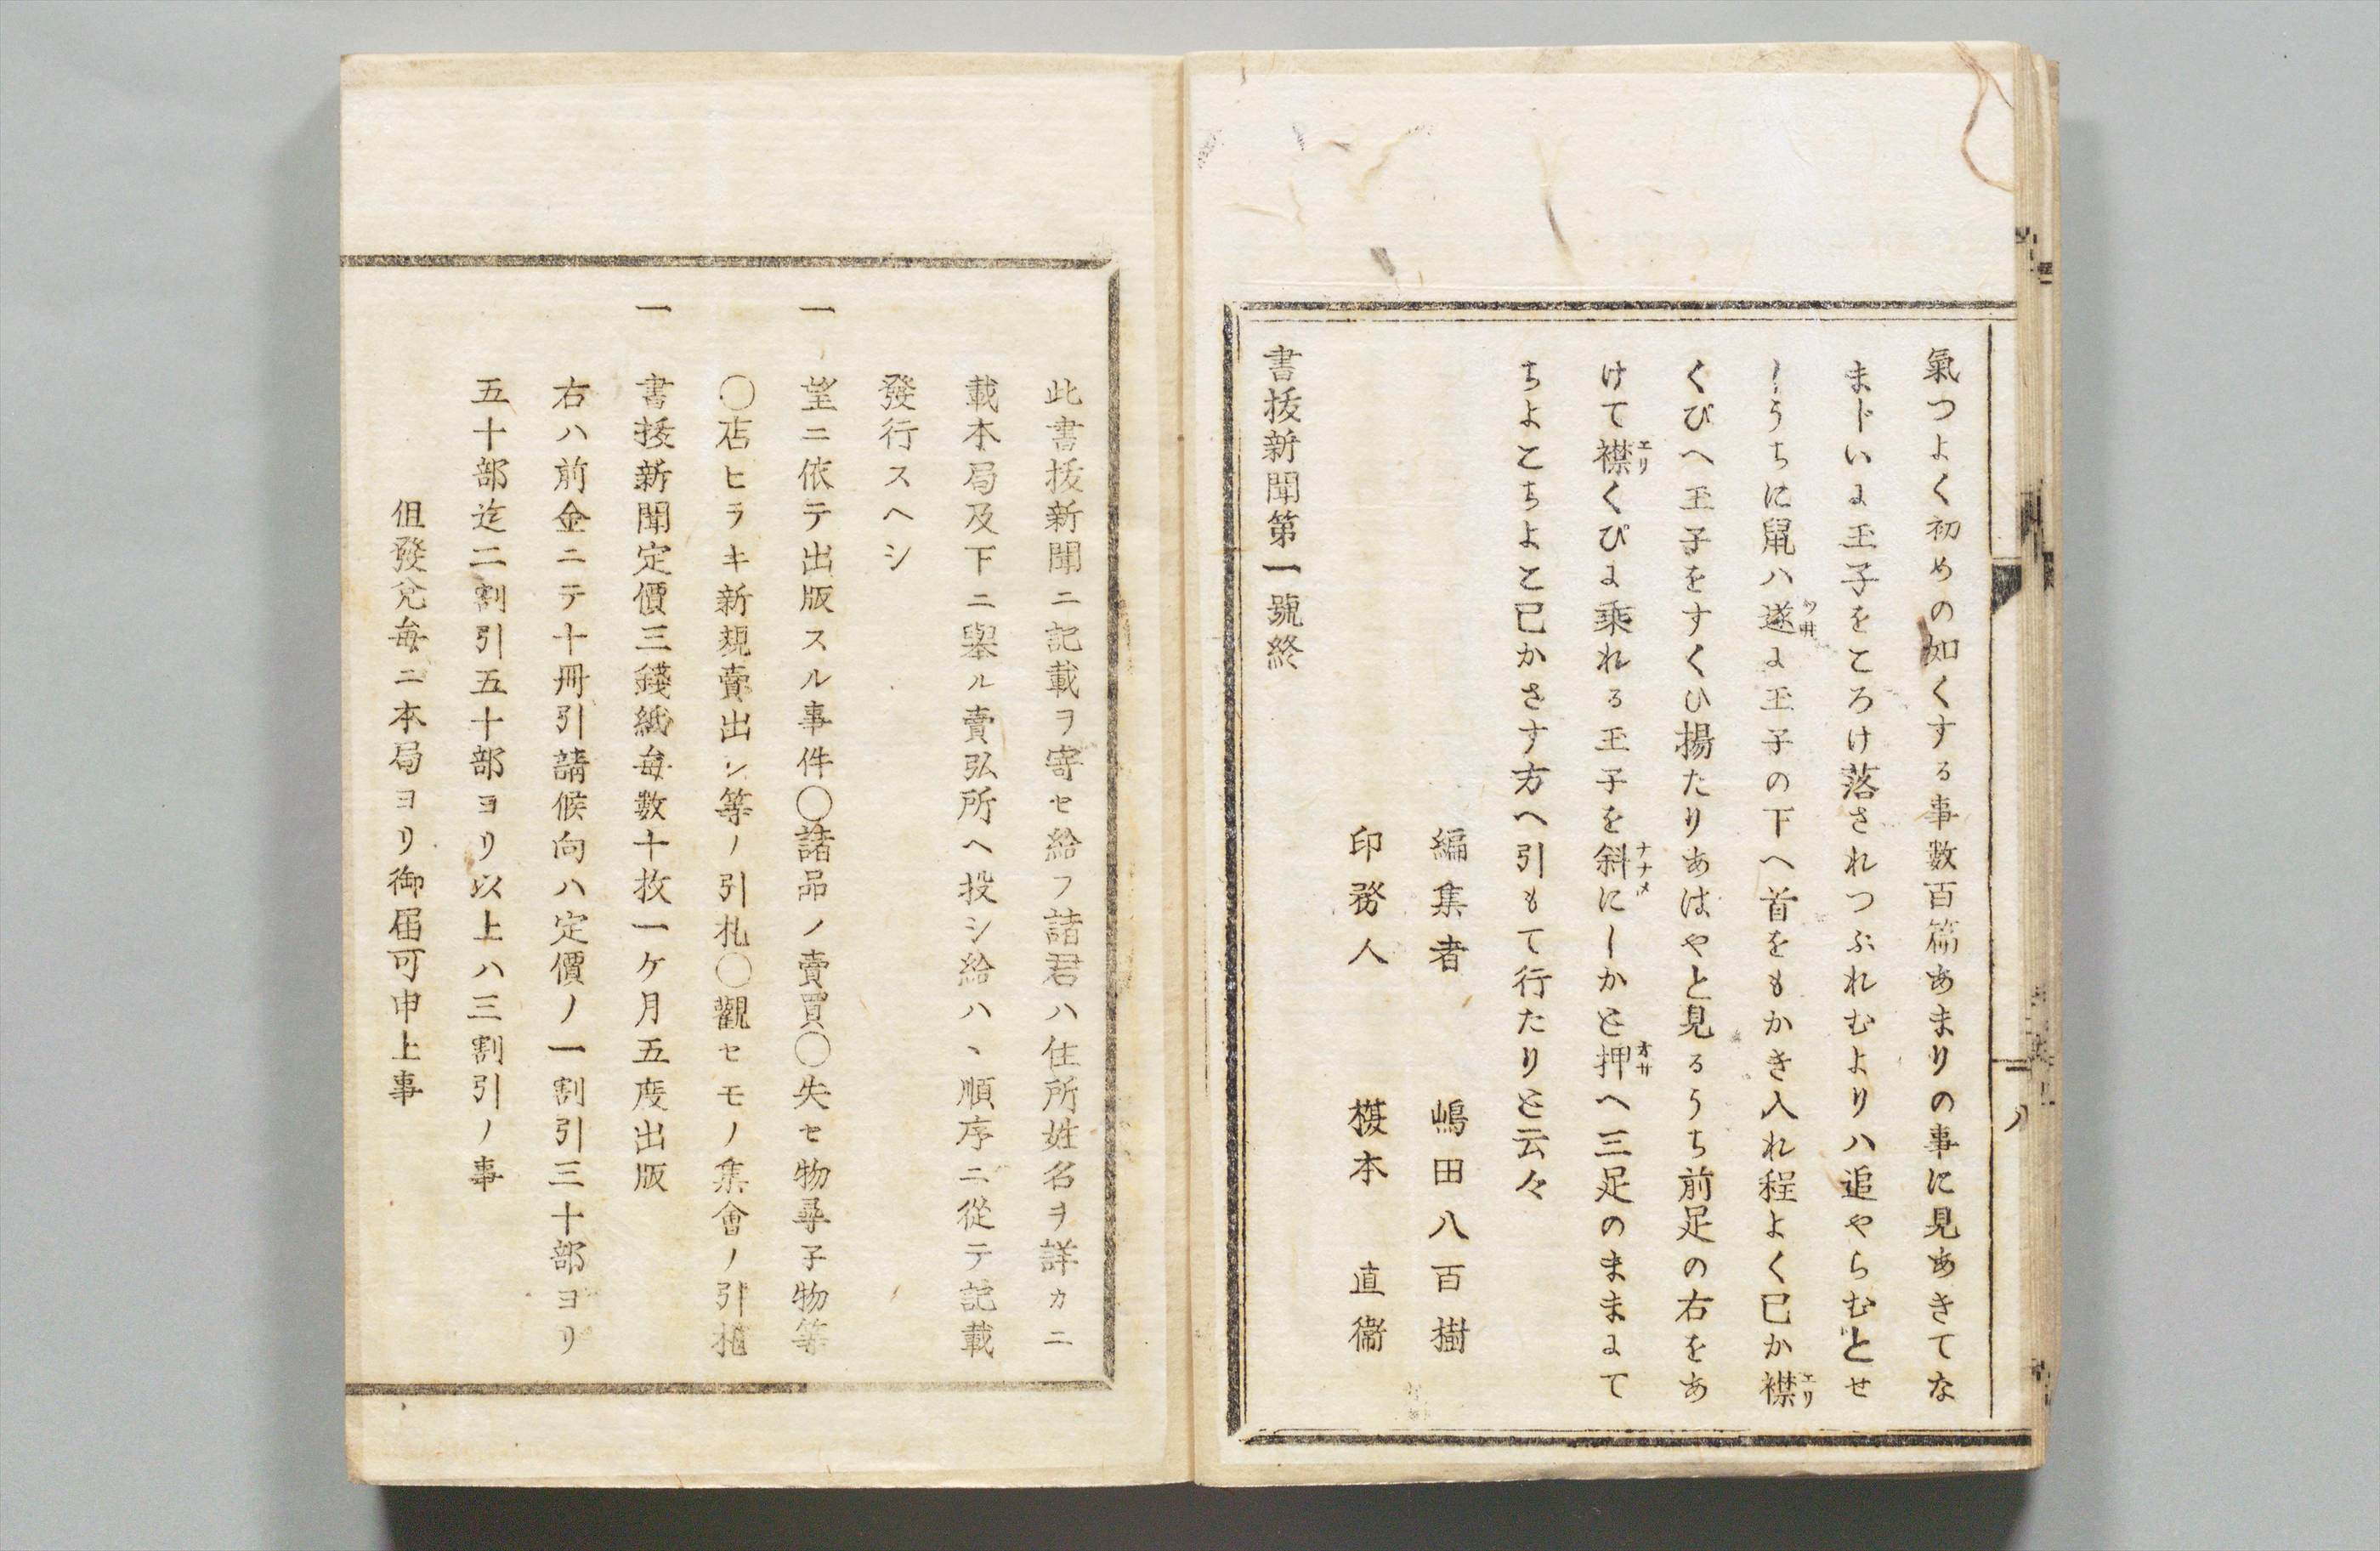 氣つよく初めの如くする事数百篇あまりの事に見あきてな
まじいに玉子をころけ落されつふれむよりハ追やらむとせ
しうちに鼠ハ遂に玉子の下へ首をもかき入れ程よく已か襟
くびへ玉子をすくひ揚たりあはやと見るうち前足の右をあ
けて襟くびに乗れる玉子を斜にしかと押へ三足のままにて
ちよこちよこ已かさす方へ引もて行たりと云々
編集者　嶋田八百樹
印務人　榎本　直衞
書抜新聞第一號終
八
此書抜新聞ニ記載ヲ寄セ給フ諸君ハ住所姓名ヲ詳カニ
載本局及下ニ擧ル賣弘所ヘ投シ給ハヽ順序ニ從テ記載
發行スヘシ
一　望ニ依テ出版スル事件〇諸品ノ賣買〇失セ物尋子物等
〇店ヒラキ新規賣出シ等ノ引札〇觀セモノ集會ノ引札
一　書抜新聞定價三錢紙毎數十枚一ケ月五度出版
右ハ前金ニテ十冊引請候向ハ定價ノ一割引三十部ヨリ
五十部迄二割引五十部ヨリ以上ハ三割引ノ事
但發兌毎ニ本局ヨリ御届可申上事